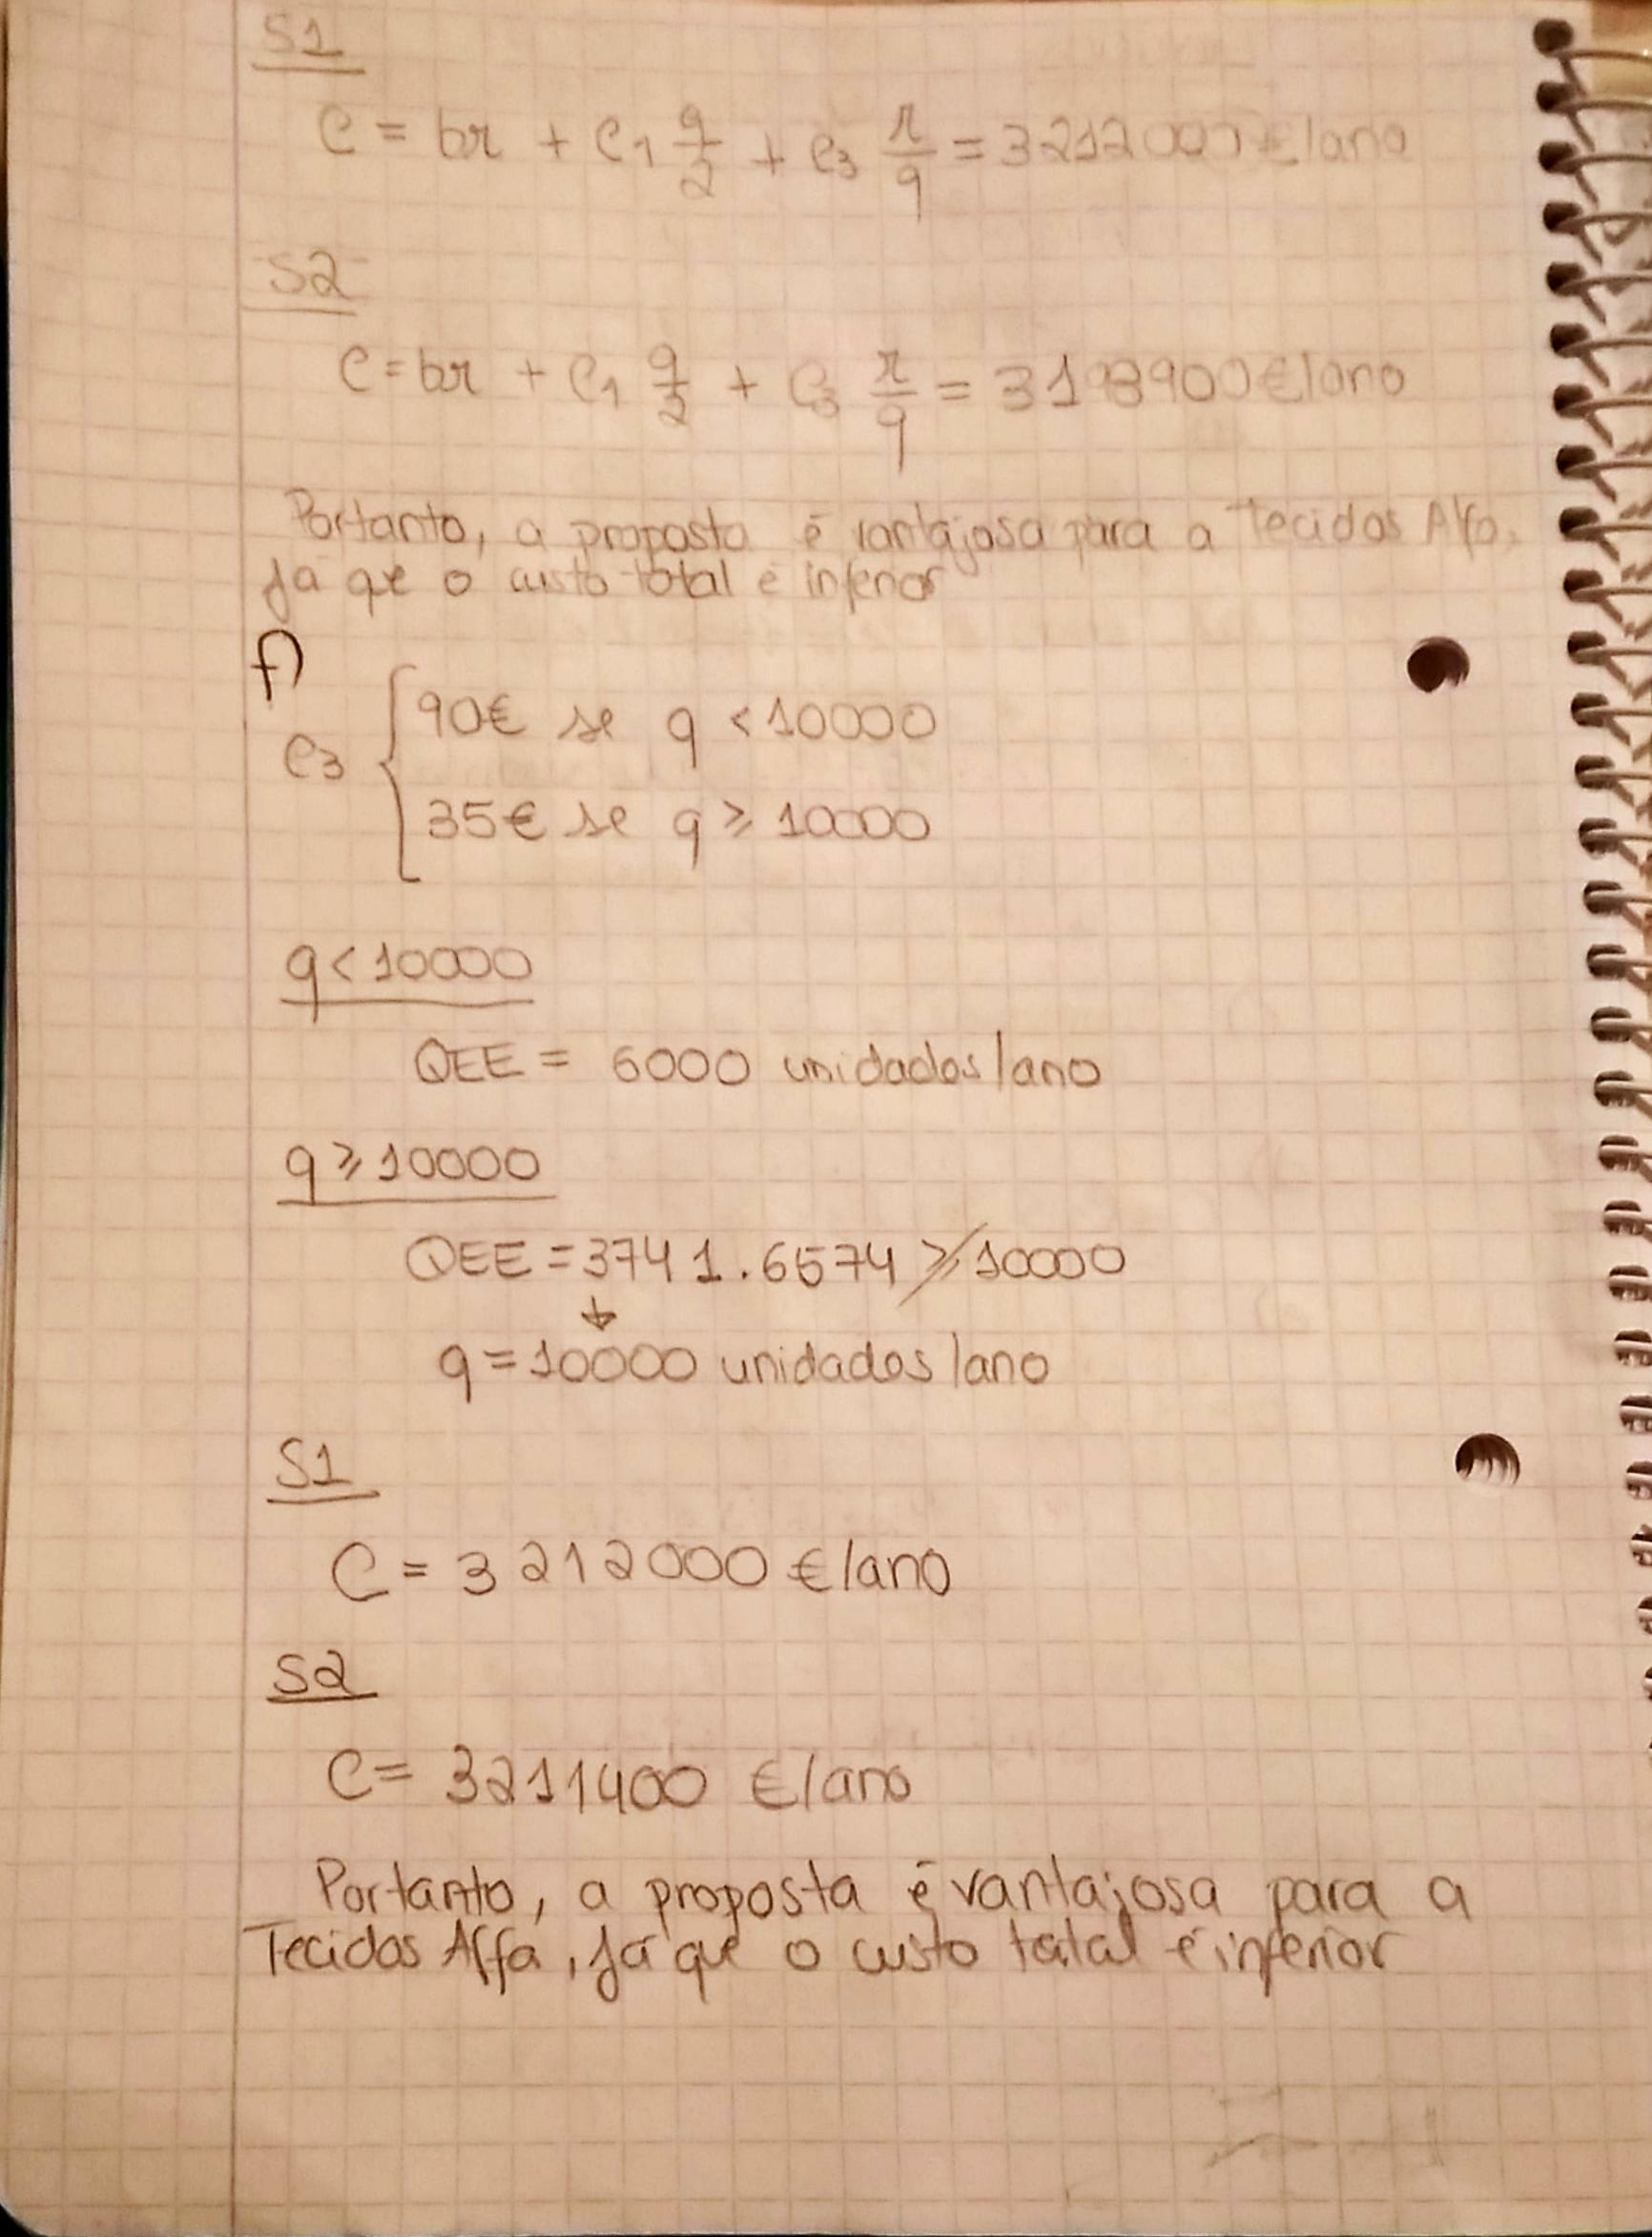 S1
C = br + C1 q/2 + C3 r/q = 3212000 €/ano
S2
C = br + C1 q/2 + C3 r/q = 3193900 €/ano
Portanto, a proposta é vantajosa para a Tecidos Alfa,
já que o custo total é inferior
f)
C3 { 90€ se q < 10000
35€ se q ⩾ 10000
q < 10000
QEE = 6000 unidades/ano
q ⩾ 10000
QEE = 3741.6574 ⩾̸ 10000
↓
q = 10000 unidades/ano
S1
C = 3212000 €/ano
S2
C = 3211400 €/ano
Portanto, a proposta é vantajosa para a
Tecidos Alfa, já que o custo total é inferior